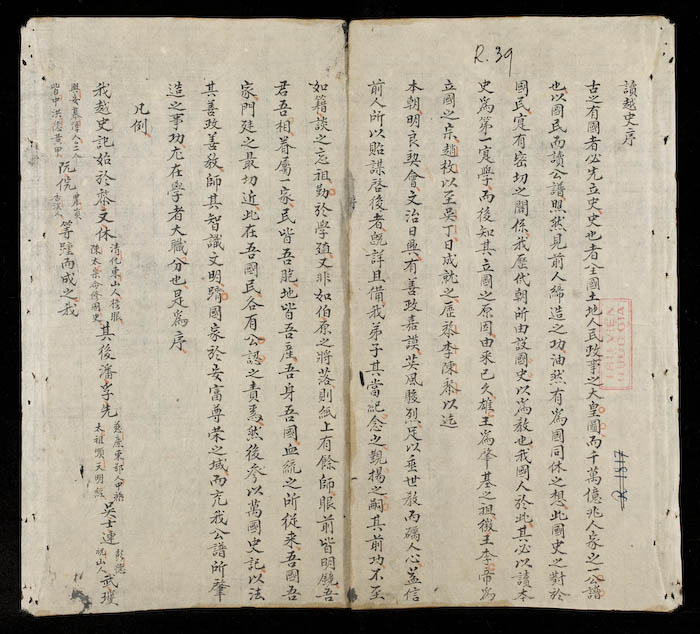 R.39
讀越史序
古之有國者必先立史史也者全國土地人民政事之大皇圖而千萬億兆人家之一公譜
也以國民而讀公譜照然見前人締造之功油然有為國同休之想此國史之對於
國民寔有密切之關係我歷代朝所由設國史以為教也我國人於此其必以讀本
史為第一寔學而後知其立國之原因由來已久雄王為肇基之祖徵王李帝為
立國之宗趙枚以至吳丁日成就之歷黎李陳黎以迄
本朝明良契會文治日興有善政嘉謨英風駿烈足以垂世教而礪人心蓋信
前人所以貽謀啓後者既詳且備我弟子其當紀念之覲揚之嗣其前功不至
如籍談之忘祖勤於學殖又非如伯原之將落則紙上有餘師眼前皆明鏡吾
君吾相眷屬一家民皆吾胞地皆吾產吾身吾國血統之所從來吾國吾
家門廷之最切近此在吾國民各有公認之責焉然後參以萬國史記以法
其善政善教師其智識文明躋國家於安富尊榮之域而充我公譜所肇
造之事功尤在學者大職分也是為序
凡例
我越史記始於黎文休 清化東山人榜眼 陳太宗命修國史 其後潘孚先 慈廉東鄂人 太祖順天明經 吳士連 彰德 祝山人 武瓊
阮侃 等踵而成之我
THƯ VIỆN
QUỐC GIA